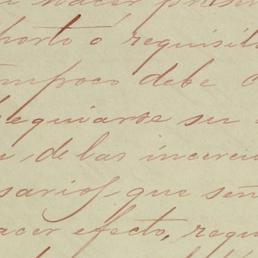 a hacer presen
porto ó requisit
ampoco debe c
seguiarse su
e de las incerci
sarios, que señ
acer efecto, requ